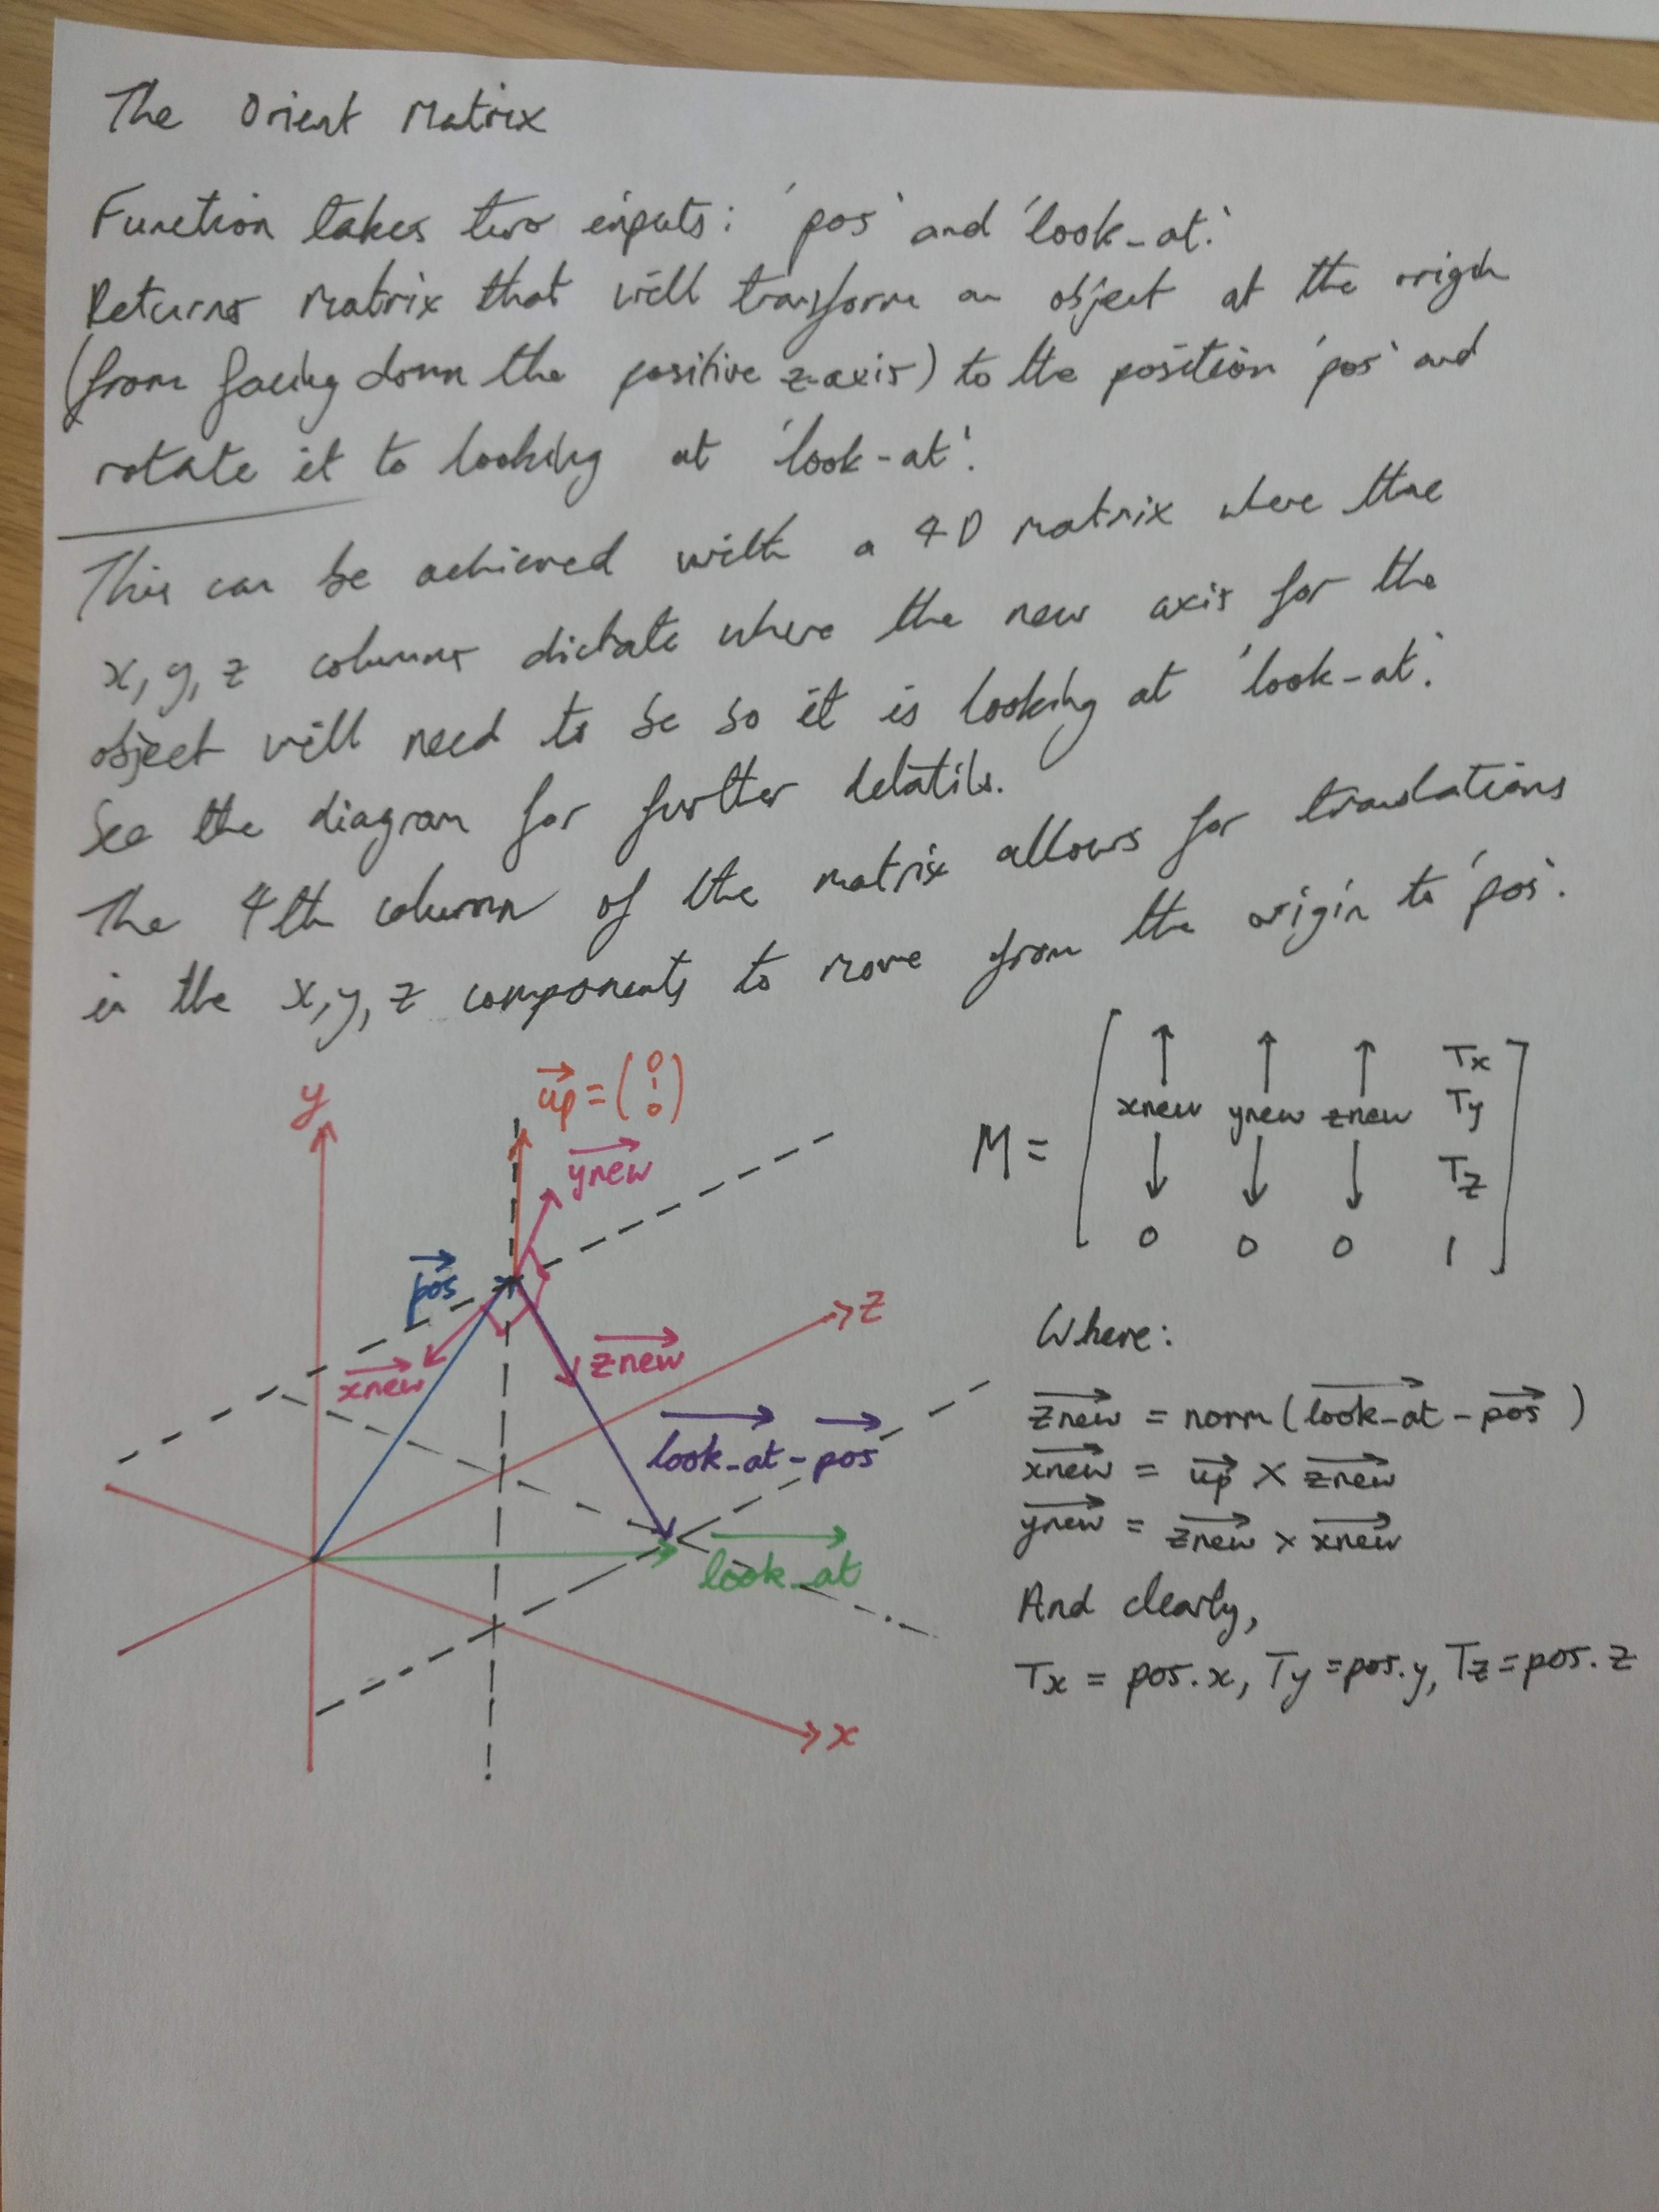 The Orient Matrix
Function takes two inputs: 'pos' and 'look_at.'
Returns matrix that will transform an object at the origin
(from facing down the positive z-axis) to the position 'pos' and
rotate it to looking at 'look-at'.
This can be achieved with a 4D matrix where the
x, y, z columns dictate where the new axis for the
object will need to be so it is looking at 'look-at.'
See the diagram for further detatils.
The 4th column of the matrix allows for translations
in the x, y, z components to move from the origin to 'pos'.
y
up = (0 1 0)
ynew
pos
xnew
znew
z
look_at - pos
look_at
x
M = [ ↑ ↑ ↑ Tx
xnew ynew znew Ty
↓ ↓ ↓ Tz
0 0 0 1 ]
Where:
znew = norm(look_at - pos)
xnew = up × znew
ynew = znew × xnew
And clearly,
Tx = pos.x, Ty = pos.y, Tz = pos.z